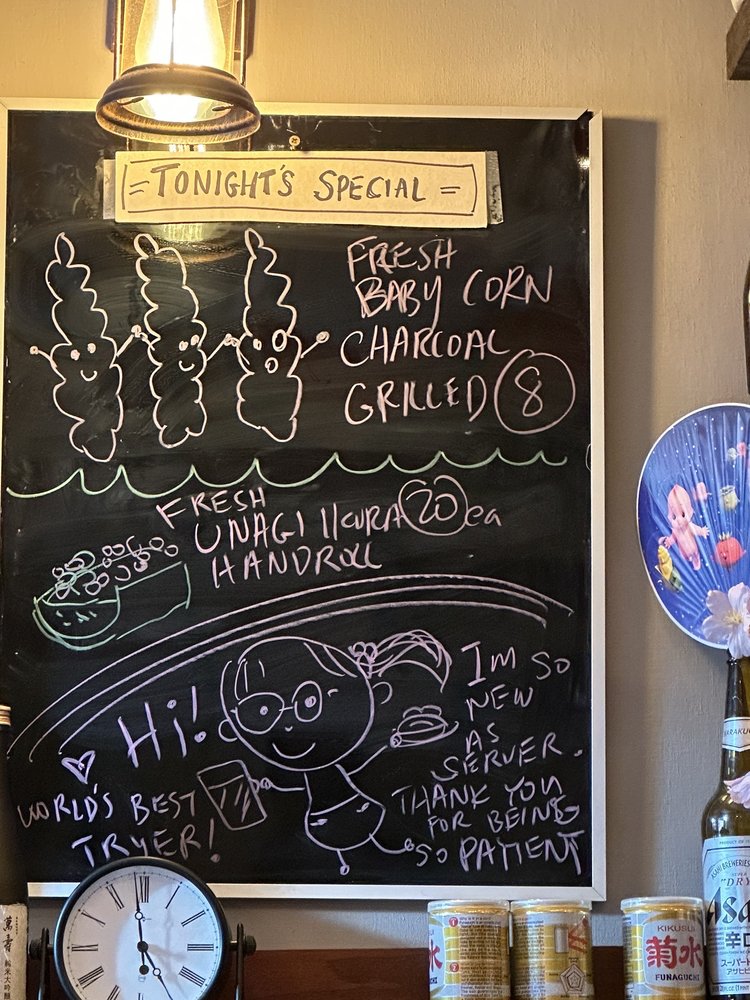 =TONIGHT'S SPECIAL=
FRESH
BABY CORN
CHARCOAL
GRILLED 8
FRESH
UNAGI IKURA 20 ea
HANDROLL
Hi!
I'M SO
NEW
AS
SERVER.
THANK YOU
FOR BEING
SO PATIENT
WORLD'S BEST
TRYER!
KIKUSUI
菊水
FUNAGUCHI
水
ASAHI BREWERIES
"DRY"
Asa
辛口
スーパード
アサヒビ
萬寿
純米大吟醸